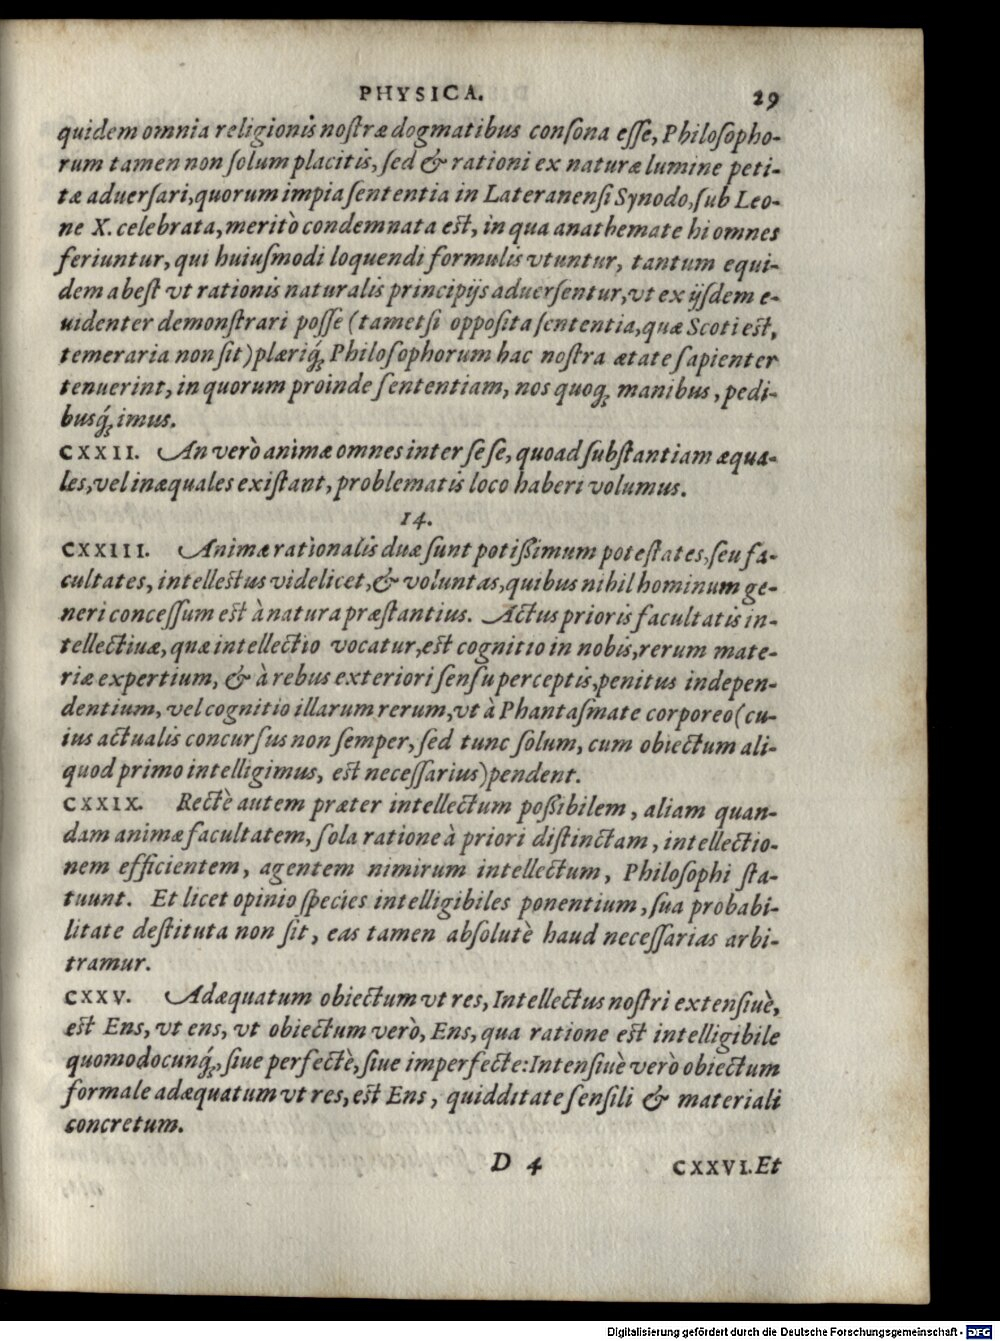 PHYSICA. 29
quidem omnia religionis nostræ dogmatibus consona esse, Philosopho-
rum tamen non solum placitis, sed & rationi ex naturæ lumine peti-
tæ aduersari, quorum impia sententia in Lateranensi Synodo, sub Leo-
ne X. celebrata, meritò condemnata est, in qua anathemate hi omnes
feriuntur, qui huiusmodi loquendi formulis vtuntur, tantum equi-
dem abest vt rationis naturalis principijs aduersentur, vt ex ijsdem e-
uidenter demonstrari posse (tametsi opposita sententia, quæ Scoti est,
temeraria non sit) plæriq́; Philosophorum hac nostra ætate sapienter
tenuerint, in quorum proinde sententiam, nos quoq; manibus, pedi-
busq́; imus.
CXXII. An verò animæ omnes inter sese, quoad substantiam æqua-
les, vel inæquales existant, problematis loco haberi volumus.
14.
CXXIII. Animæ rationalis duæ sunt potißimum potestates, seu fa-
cultates, intellectus videlicet, & voluntas, quibus nihil hominum ge-
neri concessum est à natura præstantius. Actus prioris facultatis in-
tellectiuæ, quæ intellectio vocatur, est cognitio in nobis, rerum mate-
riæ expertium, & à rebus exteriori sensu perceptis, penitus indepen-
dentium, vel cognitio illarum rerum, vt à Phantasmate corporeo (cu-
ius actualis concursus non semper, sed tunc solum, cum obiectum ali-
quod primo intelligimus, est necessarius) pendent.
CXXIX. Rectè autem præter intellectum poßibilem, aliam quan-
dam animæ facultatem, sola ratione à priori distinctam, intellectio-
nem efficientem, agentem nimirum intellectum, Philosophi sta-
tuunt. Et licet opinio species intelligibiles ponentium, sua probabi-
litate destituta non sit, eas tamen absolutè haud necessarias arbi-
tramur.
CXXV. Adæquatum obiectum vt res, Intellectus nostri extensiuè,
est Ens, vt ens, vt obiectum verò, Ens, qua ratione est intelligibile
quomodocunq́;, siue perfectè, siue imperfecte: Intensiuè verò obiectum
formale adæquatum vt res, est Ens, quidditate sensili & materiali
concretum.
D 4 CXXVI. Et
Digitalisierung gefördert durch die Deutsche Forschungsgemeinschaft - DFG